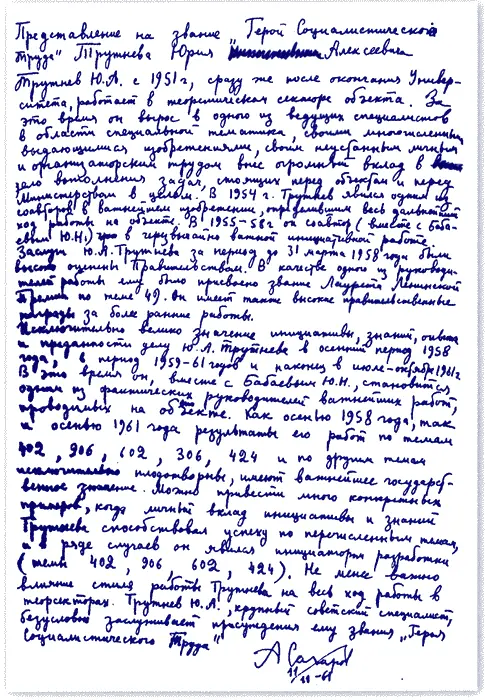 Представление на звание „Герой Социалистической
Труда" Трутнева Юрия Алексеевича
Трутнев Ю.А. с 1951 г, сразу же после окончания Универ-
ситета, работает в теоретическом секторе объекта. За
это время он вырос в одного из ведущих специалистов
в области специальной тематики, своими многочисленными
выдающимися изобретениями, своим неустанным личным
и организаторским трудом внес огромный вклад в
дело выполнения задач, стоящих перед объектом и перед
Министерством в целом. В 1954 г. Трутнев явился одним из
соавторов в важнейшем изобретении, определившим весь дальнейший
ход работы на объекте. В 1955-58г он соавтор (вместе с Баба-
евым Ю.Н.) в чрезвычайно важной инициативной работе.
Заслуги Ю.А. Трутнева за период до 31 марта 1958 года были
высоко оценены Правительством. В качестве одного из руководи-
телей работы ему было присвоено звание Лауреата Ленинской
Премии по теме 49. Он имеет также высокие правительственные
награды за более ранние работы.
Исключительно велико значение инициативы, знаний, опыта
и преданности делу Ю.А. Трутнева в осенний период 1958
года, в период 1959-61 годов и наконец в июле-октябре 1961 г
В это время он, вместе с Бабаевым Ю.Н., становится
одним из фактических руководителей важнейших работ,
проводимых на объекте. Как осенью 1958 года, так
и осенью 1961 года результаты его работ по темам
402, 906, 602, 306, 424 и по другим темам
исключительно плодотворны, имеют важнейшее государст-
венное значение. Можно привести много конкретных
примеров, когда личный вклад инициативы и знаний
Трутнева способствовал успеху по перечисленным темам,
а в ряде случаев он явился инициатором разработки
(темы 402, 906, 602, 424). Не менее важно
влияние стиля работы Трутнева на весь ход работы в
теорсекторах. Трутнев Ю.А., крупный советский специалист,
безусловно заслуживает присуждения ему звания „Героя
Социалистического Труда"
А Сахаров
11/11-61